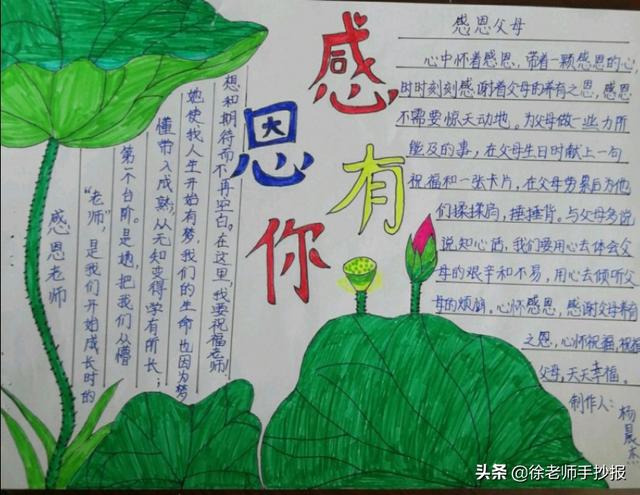 感恩有你
感恩老师
“老师”，是我们开始成长时的
第一个台阶。是她，把我们从懵
懂带入成熟，从无知变得学有所长；
她使我人生开始有梦，我们的生命也因为梦
想和期待而不再空白。在这里，我要祝福老师！
感恩父母
心中怀着感恩，带着一颗感恩的心
时时刻刻感谢着父母的养有之恩，感恩
不需要惊天动地。为父母做一些力所
能及的事，在父母生日时献上一句
祝福和一张卡片，在父母劳累后为他
们揉揉肩，捶捶背。与父母多说
说知心话，我们要用心去体会父
母的艰辛和不易，用心去倾听父
母的烦恼。心怀感恩，感谢父母养育
之恩，心怀祝福，祝福
父母，天天幸福。
制作人：杨
头条 @徐老师手抄报